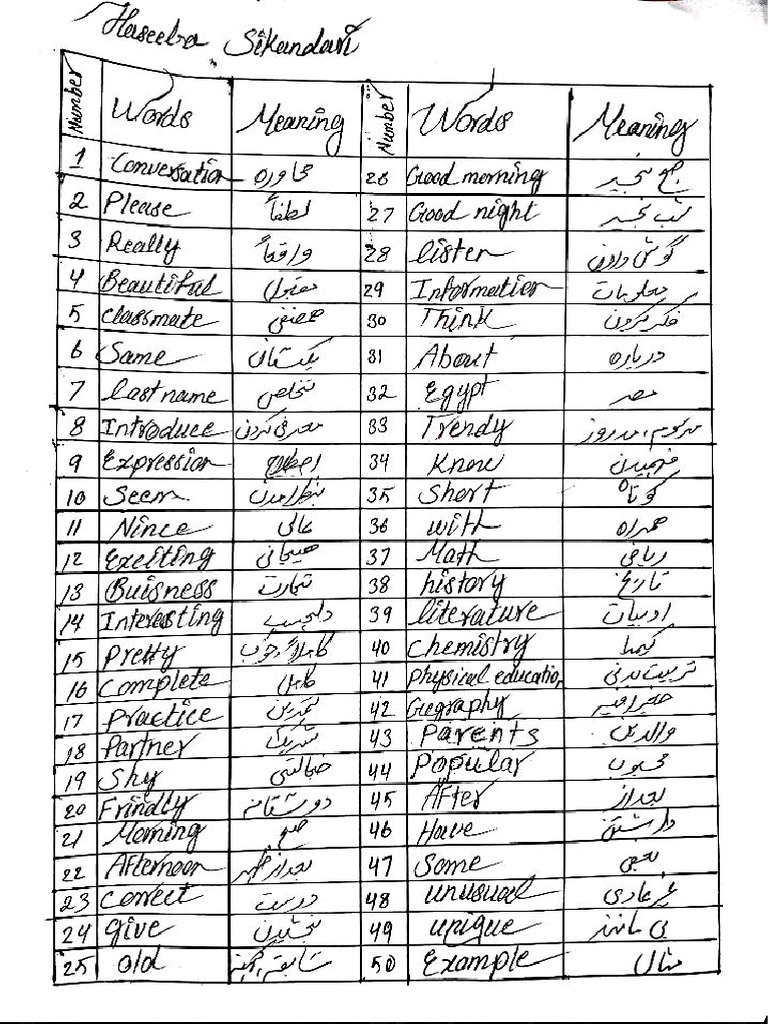 Haseeba Sikandari
Number Words Meaning Number Words Meaning
1 Conversation محاوره 26 Good morning صبح بخیر
2 Please لطفاً 27 Good night شب بخیر
3 Really واقعاً 28 listen گوش دادن
4 Beautiful مقبول 29 Information معلومات
5 classmate همصنفی 30 Think فکر کردن
6 Same یکسان 31 About درباره
7 last name تخلص 32 Egypt مصر
8 Introduce معرفی کردن 33 Trendy مد روز
9 Expression اصطلاح 34 Know فهمیدن
10 Seem بنظر آمدن 35 Short کوتاه
11 Nince عالی 36 with همراه
12 Exeiting هیجانی 37 Math ریاضی
13 Buisness تجارت 38 history تاریخ
14 Interesting دلچسپ 39 literature ادبیات
15 Pretty کاملاً خوب 40 chemistry کیمیا
16 Complete کامل 41 physical education تربیت بدنی
17 Practice تمرین 42 Geography جغرافیه
18 Partner شریک 43 Parents والدین
19 Shy خجالتی 44 Popular محبوب
20 Frindly دوستانه 45 After بعد از
21 Morning صبح 46 Have داشتن
22 Afternoon بعد از ظهر 47 Some بعضی
23 Correct درست 48 unusual غیر عادی
24 give بخشیدن 49 unique بی مانند
25 old سابقه 50 Example مثال